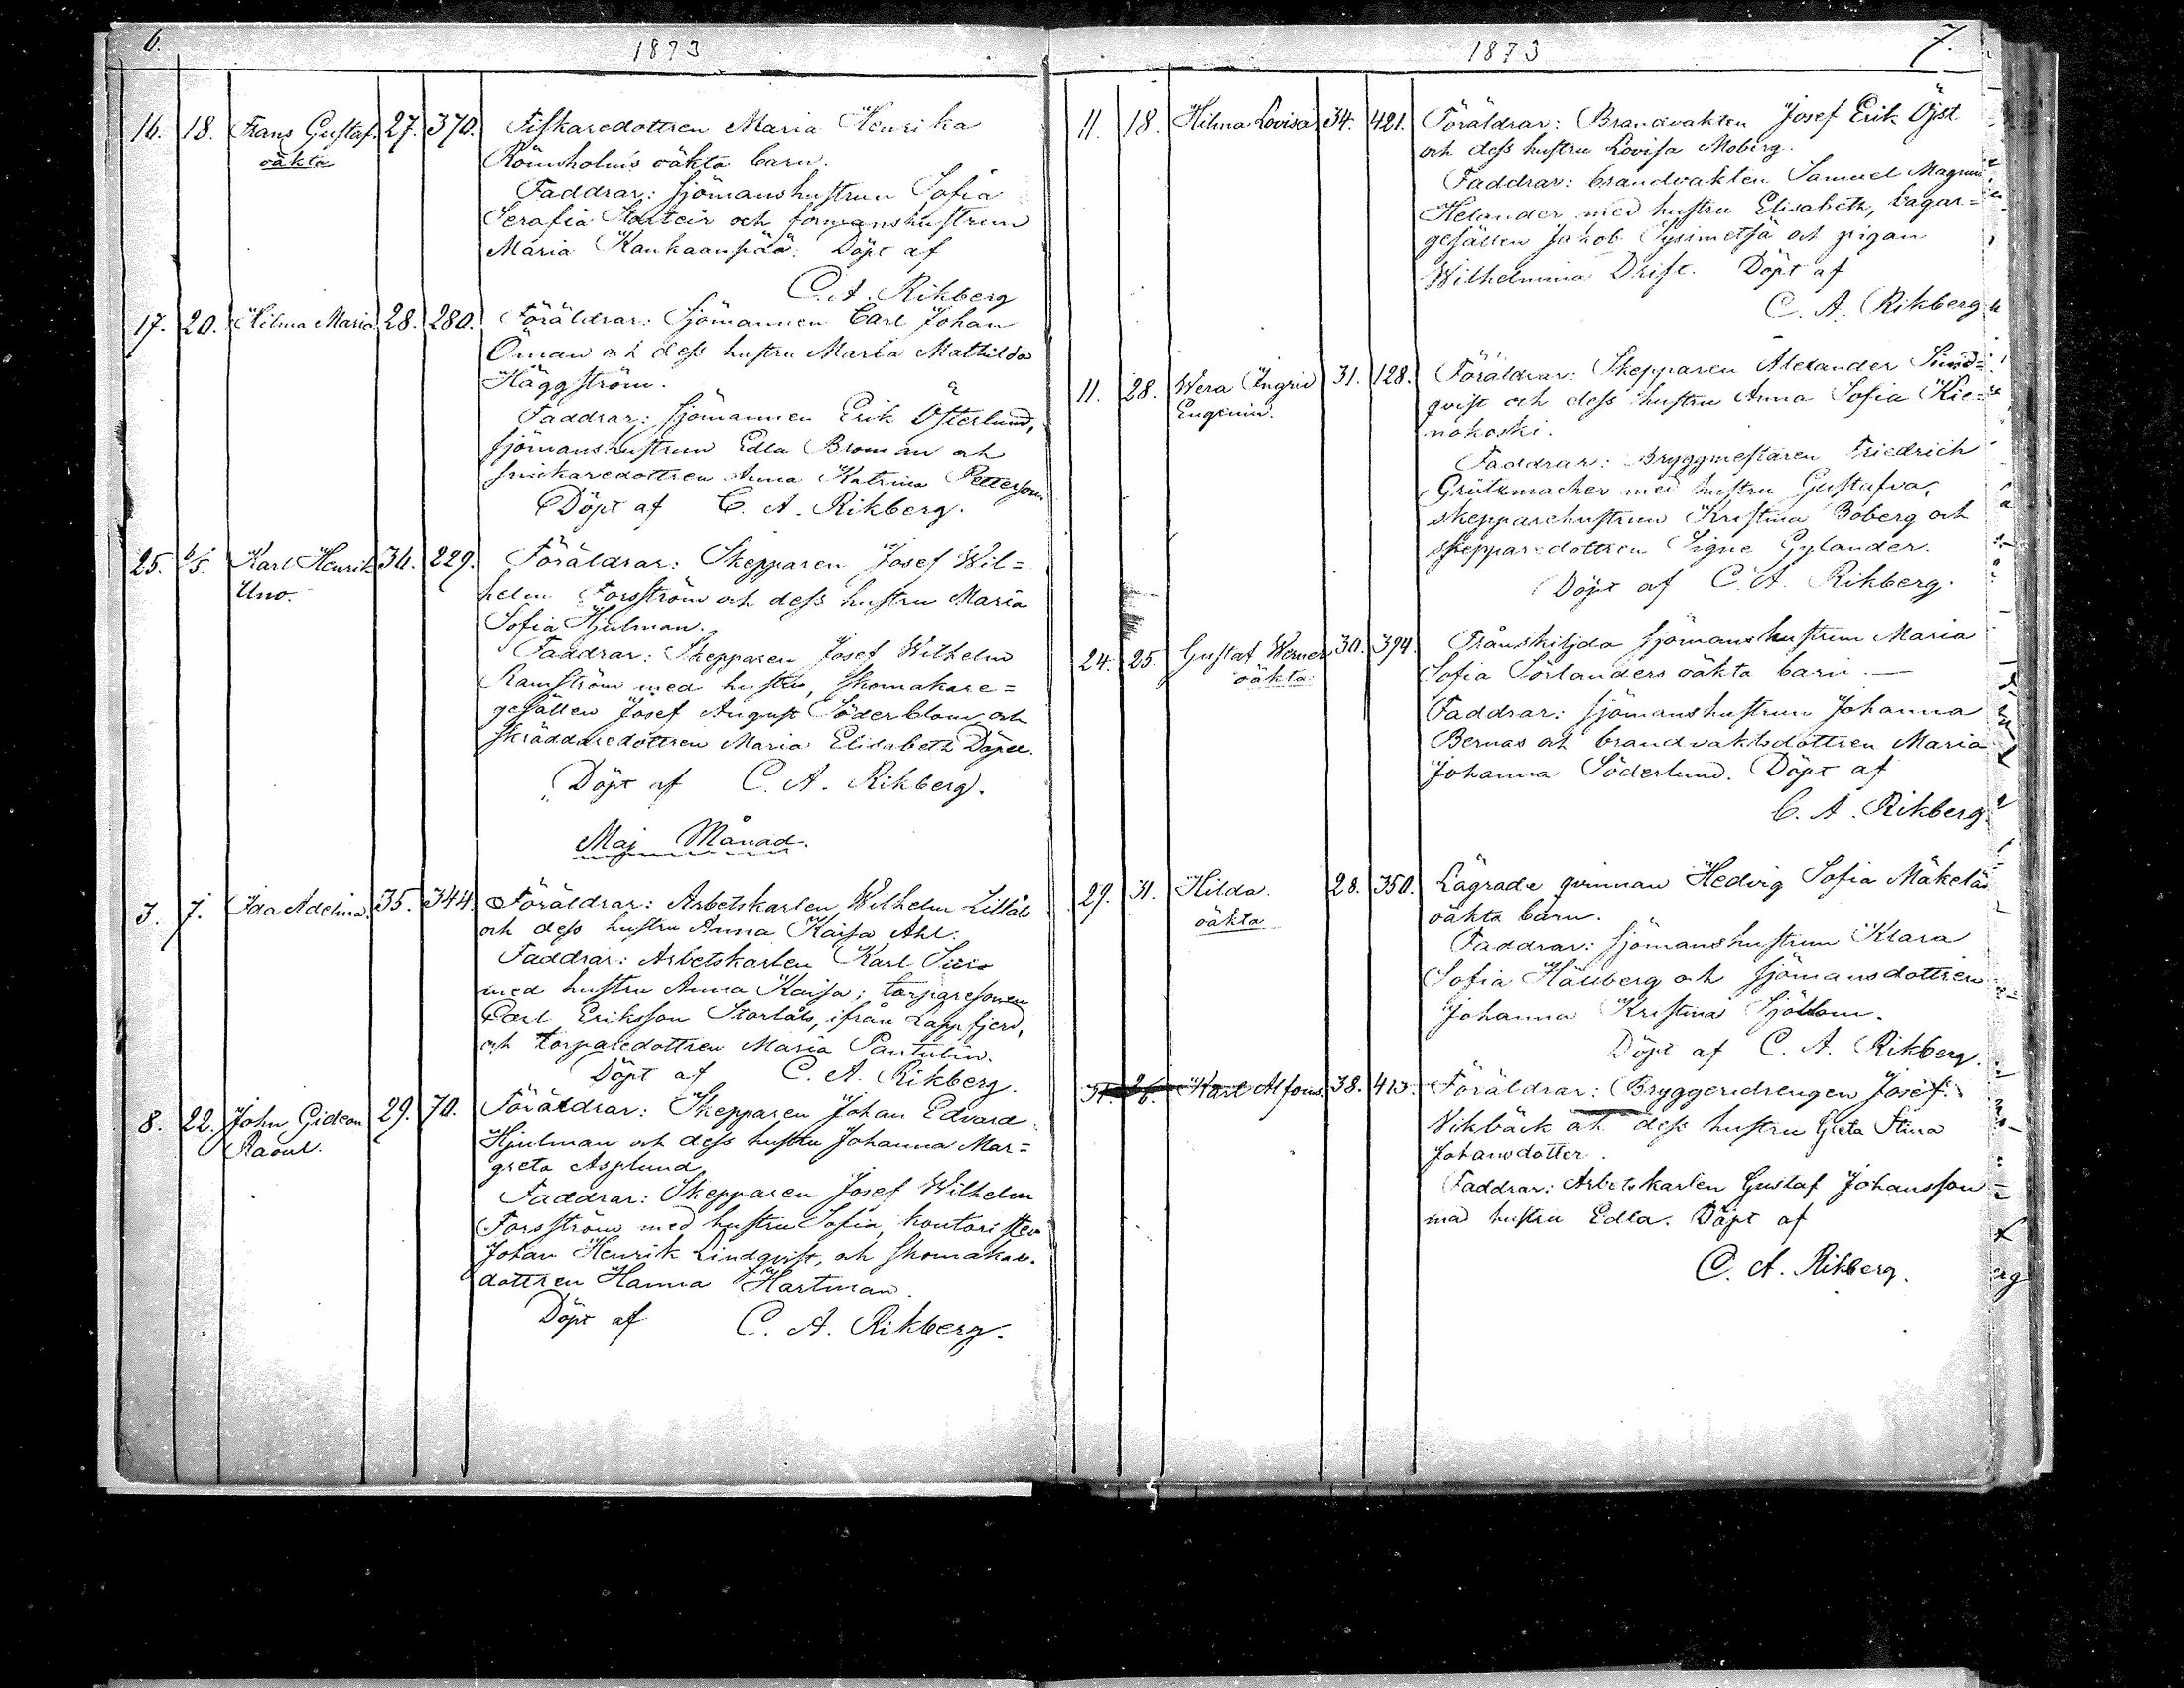 6.
1873
16. 18. Frans Gustaf. 27. 370. Fiskaredottren Maria Henrika
oäkta Römsholms oäkta barn.
Faddrar: sjömanshustrun Sofia
Serafia och formanshustrun
Maria Kankaanpää. Döpt af
C. A. Rikberg
17. 20. Hilma Maria 28. 280. Föräldrar: Sjömannen Carl Johan
Öman och dess hustru Maria Mathilda
Häggström.
Faddrar: sjömannen Erik Österlund,
sjömanshustrun Edla Broman och
snickaredottren Anna Katrina Pettersson
Döpt af C. A. Rikberg.
25. 6/5. Karl Henrik 36. 229. Föräldrar: Skepparen Josef Wil=
Uno. helm Forsström och dess hustru Maria
Sofia Hjulman.
Faddrar: Skepparen Josef Wilhelm
Ramström med hustru, skomakare=
gesällen Josef August Söderblom och
skräddaredottren Maria Elisabeth
Döpt af C. A. Rikberg.
Maj Månad.
3. 7. Ida Adelina. 35. 344. Föräldrar: Arbetskarlen Wilhelm Lillåls
och dess hustru Anna Kaisa Ahl.
Faddrar: Arbetskarlen Karl
med hustru Anna Kaisa; torparesonen
Carl Eriksson Storlåls, ifrån Lappfjerd,
och torparedottren Maria Pantulin.
Döpt af C. A. Rikberg.
8. 22. John Gideon 29. 70. Föräldrar: Skepparen Johan Edvard
Raoul. Hjulman och dess hustru Johanna Mar=
greta Asplund
Faddrar: Skepparen Josef Wilhelm
Forsström med hustru Sofia, kontoristen
Johan Henrik Lindqvist, och skomakare
dottren Hanna Hartman.
Döpt af C. A. Rikberg.
1873 7.
11. 18. Hilma Lovisa 34. 421. Föräldrar: Brandvakten Josef Erik Öjst
och dess hustru Lovisa Moberg.
Faddrar: brandvakten Samuel Magnus
Helander med hustru Elisabeth, bagar=
gesällen Jakob Sysimetsä och pigan
Wilhelmina Drift. Döpt af
C. A. Rikberg
11. 28. Wera Ingrid 31. 128. Föräldrar: Skepparen Alexander Sund=
Eugenia. qvist och dess hustru Anna Sofia Kie=
nokoski.
Faddrar: Bryggmestaren Friedrich
Grützmacher med hustru Gustafva,
skepparehustrun Kristina Boberg och
skepparedottren Signe Gylander.
Döpt af C. A. Rikberg.
24. 25. Gustaf Werner 30. 394. Frånskiljda sjömanshustrun Maria
oäkta Sofia Sörlanders oäkta barn. —
Faddrar: sjömanshustrun Johanna
Bernas och brandvaktsdottren Maria
Johanna Söderlund. Döpt af
C. A. Rikberg.
29. 31. Hilda. 28. 350. Lägrade qvinnan Hedvig Sofia Mäkeläs
oäkta oäkta barn.
Faddrar: sjömanshustrun Klara
Sofia Hällberg och sjömansdottren
Johanna Kristina Sjöblom.
Döpt af C. A. Rikberg.
31. Karl Alfons. 38. 413. Föräldrar: Bryggeridrengen Josef
Vikbäck och dess hustru Greta Stina
Johansdotter.
Faddrar: Arbetskarlen Gustaf Johansson
med hustru Edla. Döpt af
C. A. Rikberg.